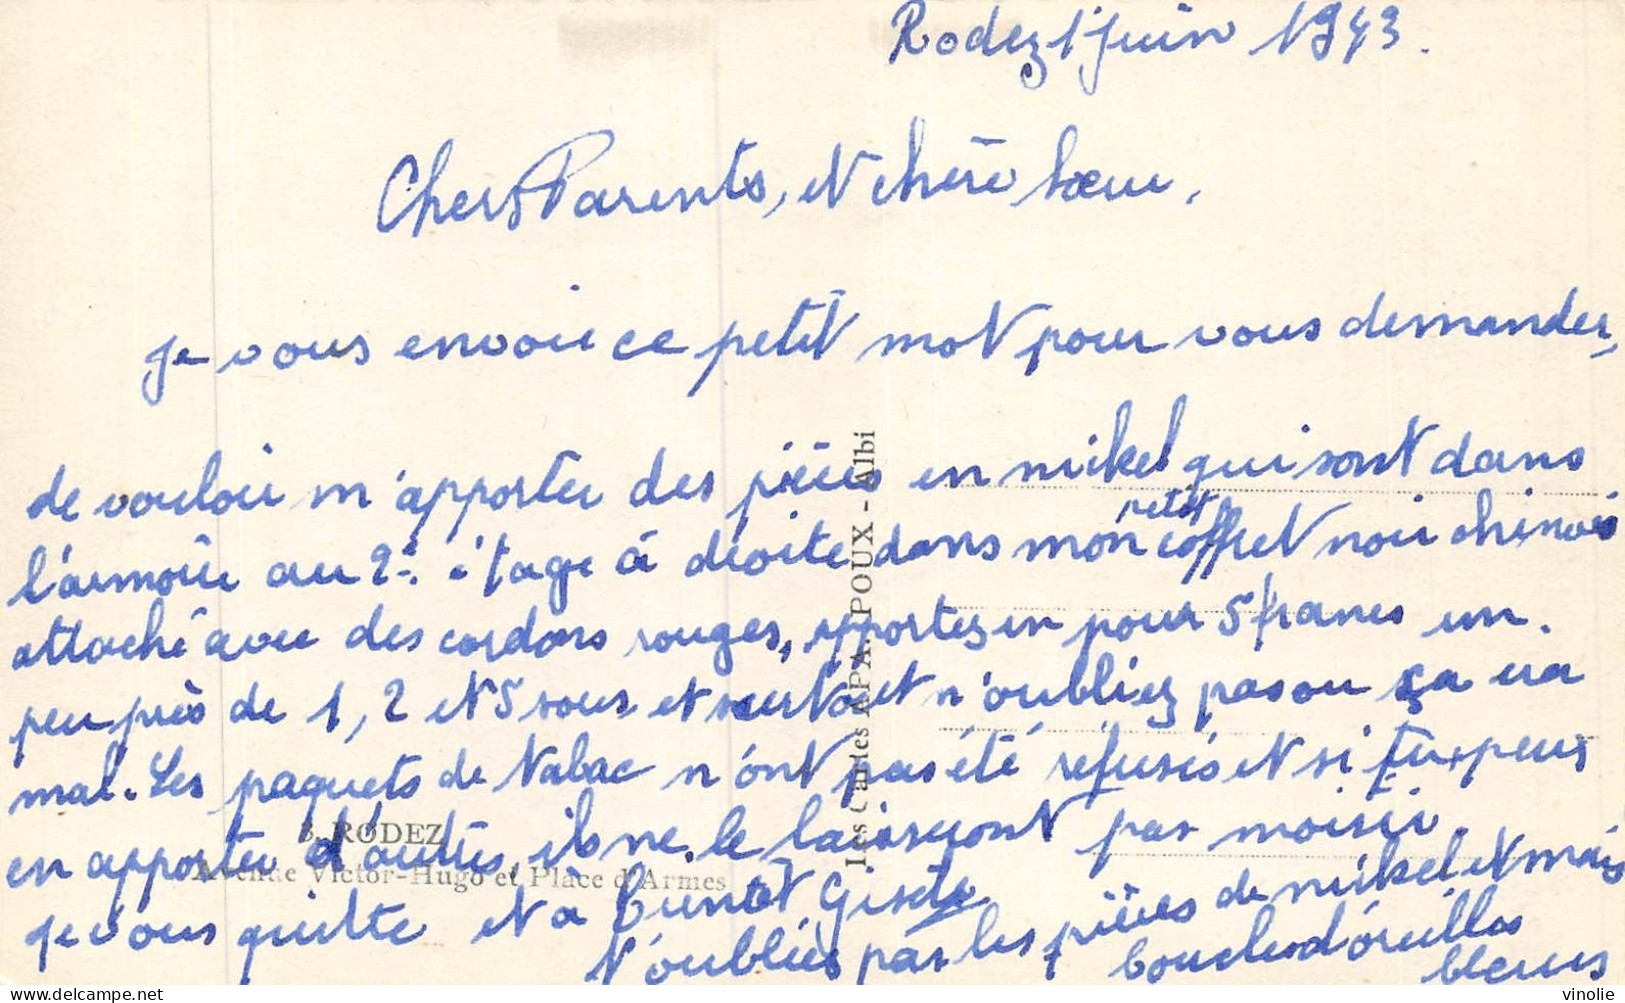 Rodez 1 juin 1943.
Chers Parents, et chère sœur,
je vous envoie ce petit mot pour vous demander,
de vouloir m'apporter des pièces en nikel qui sont dans
l'armoire au 2è étage à droite dans mon petit coffret noir chinois
attaché avec des cordons rouges, apportez en pour 5 francs un.
peu près de 1, 2 et 5 sous et surtout n'oubliez pas ou ça ira
mal. Les paquets de tabac n'ont pas été refusés et si tu peux
en apporter d'autres, ils ne le laisseront pas moisir.
je vous quitte et à bientôt Gisèle
N'oubliés pas les pièces de nikel et mais
boucles d'oreilles
bleus
3. RODEZ
Avenue Victor-Hugo et Place d'Armes
Les Cartes APA. POUX - Albi
delcampe.net
vinolie